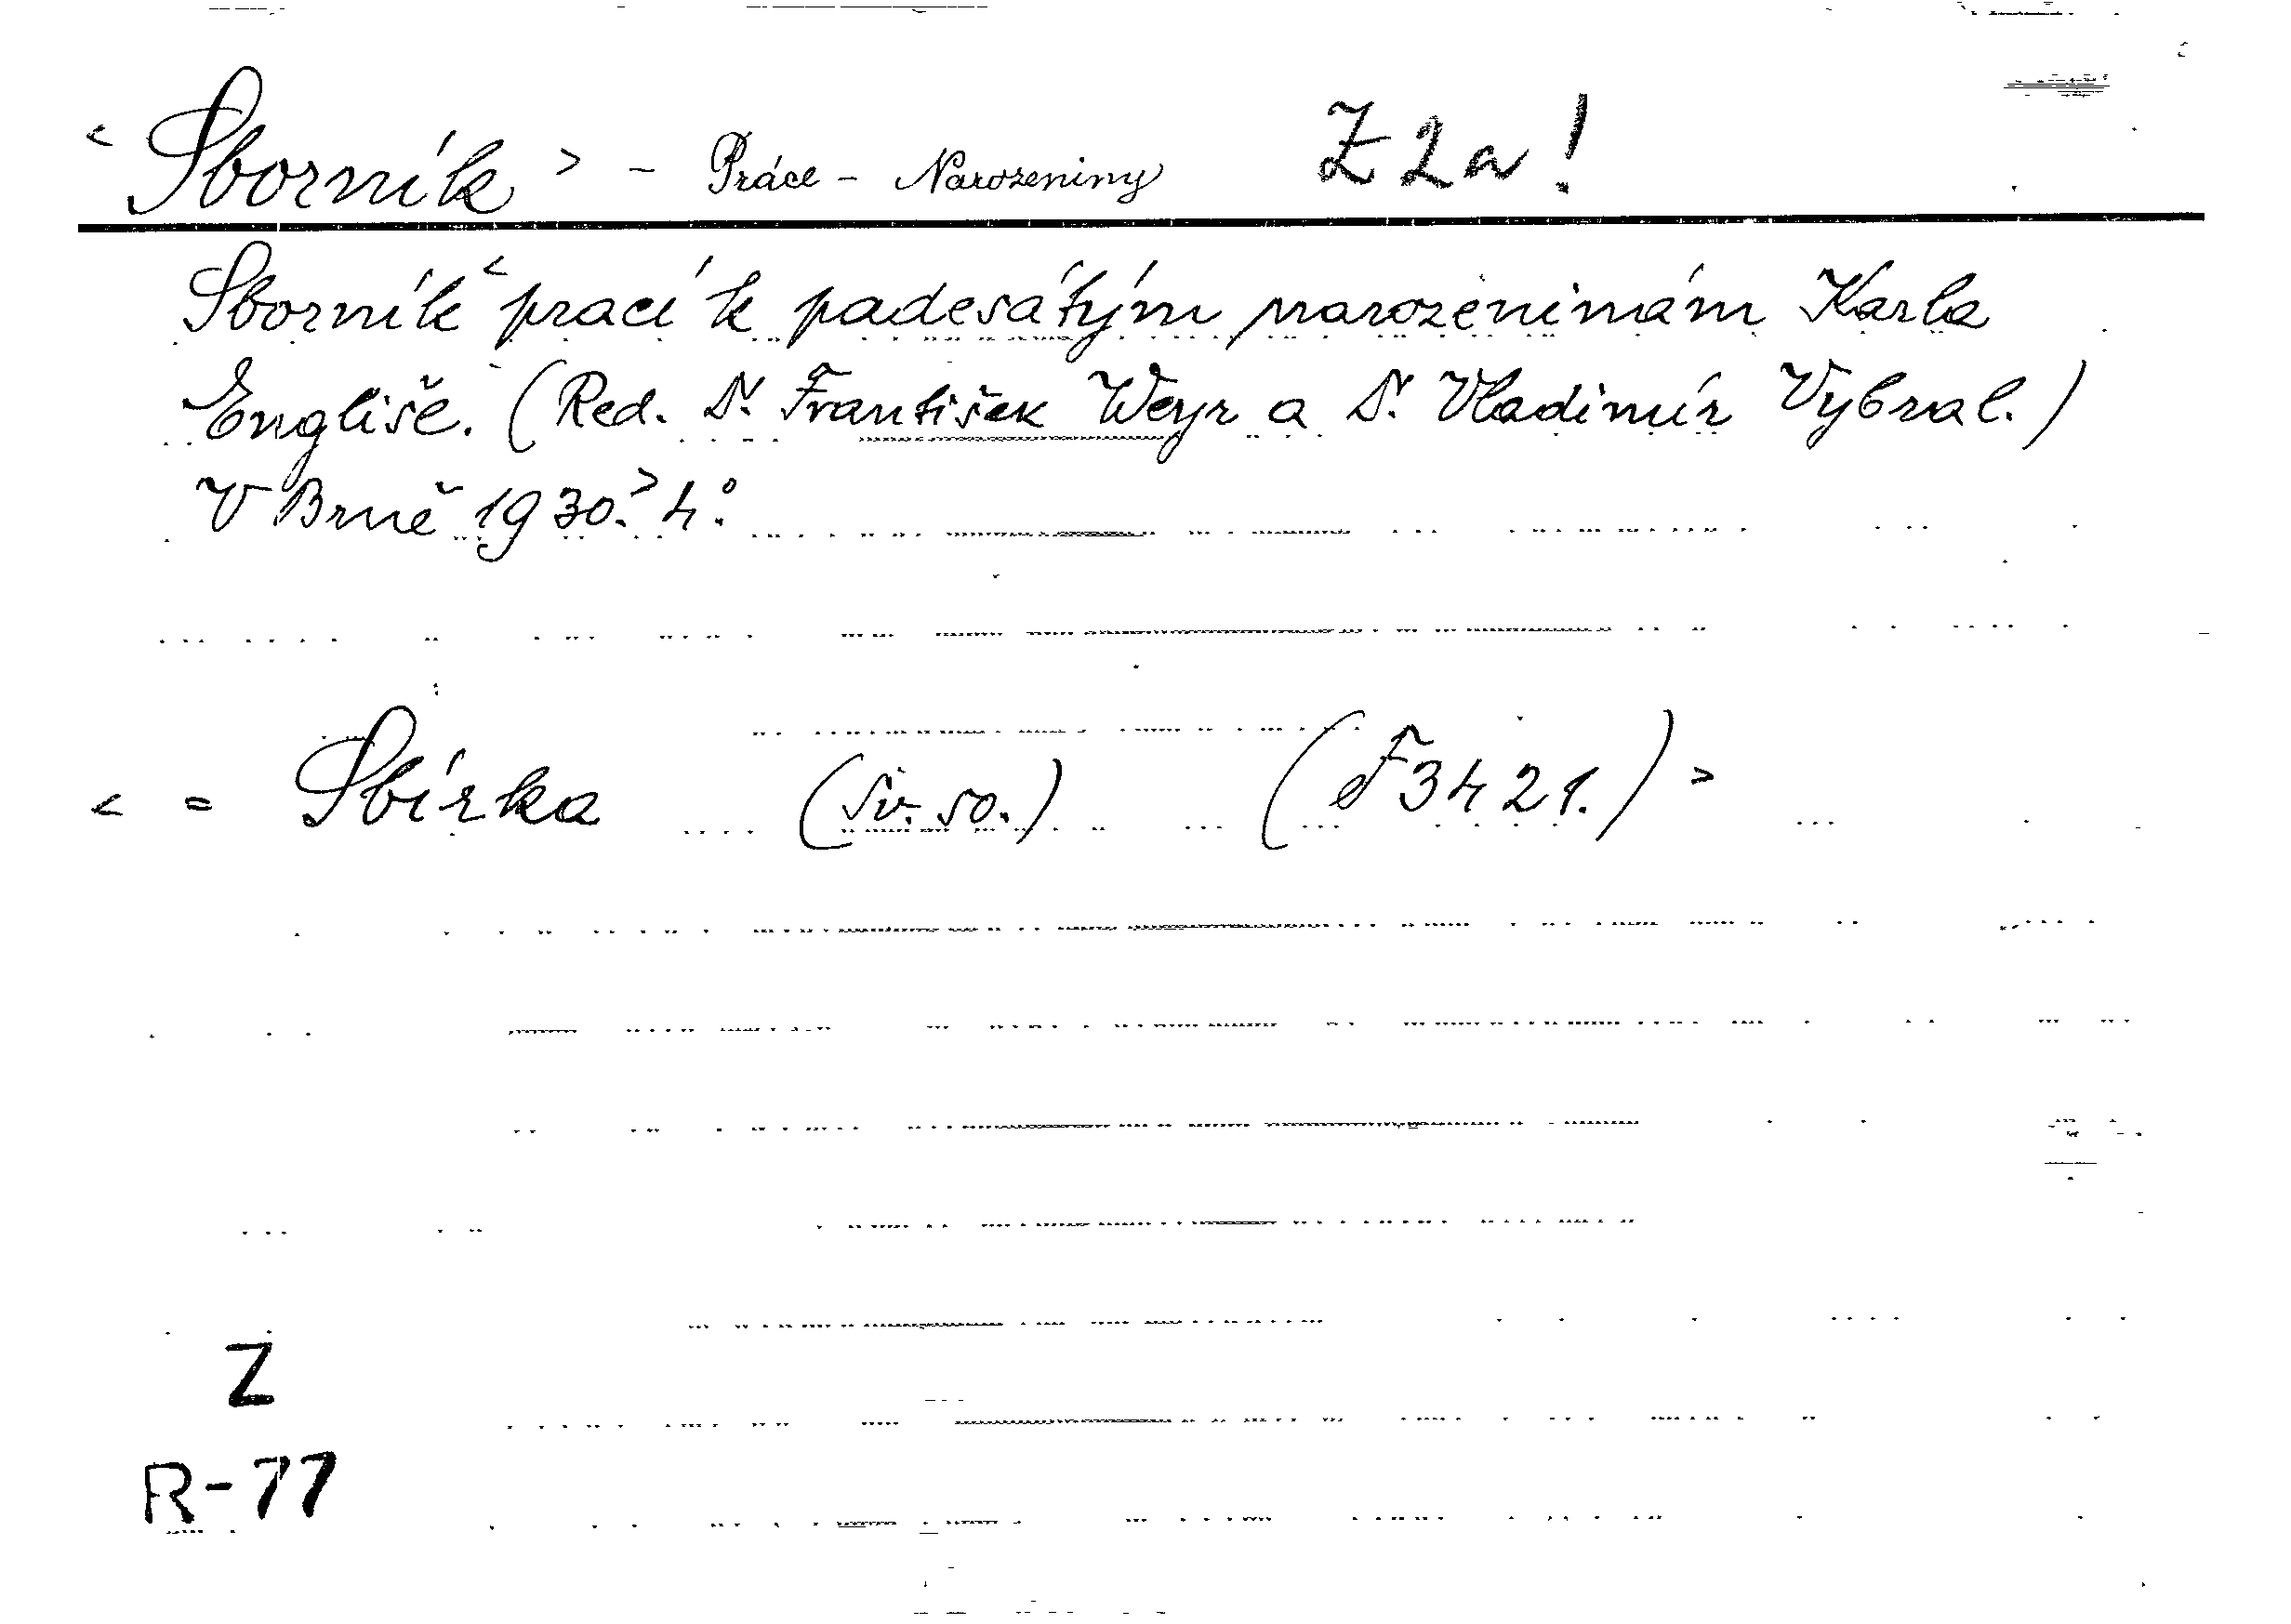 < Sborník > - Práce - Narozeniny Z 2 a !
Sborník < prací k padesátým narozeninám Karla
Engliše. (Red. Dr. František Weyr a Dr. Vladimír Vybral.)
V Brně 1930. > 4°.
< = Sbírka (Sv. 50.) (F 3421.) >
Z
R-77